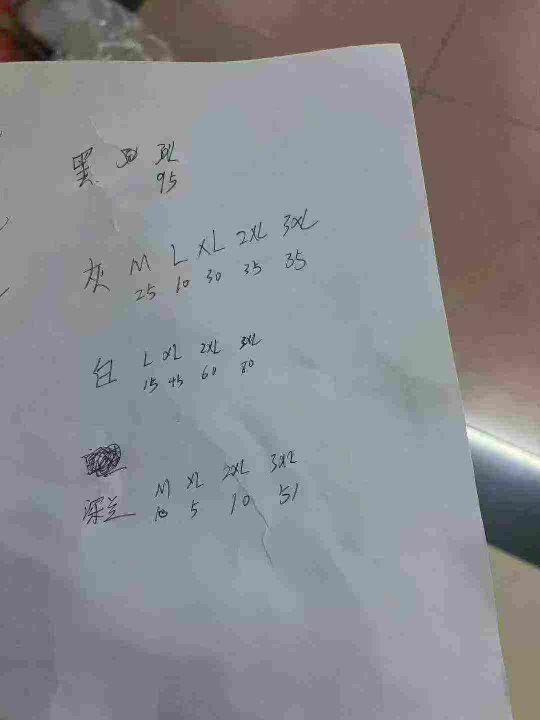 黑 3XL
95
灰 M L XL 2XL 3XL
25 10 30 35 35
白 L XL 2XL 3XL
15 45 60 80
M XL 2XL 3XL
深兰 10 5 10 51